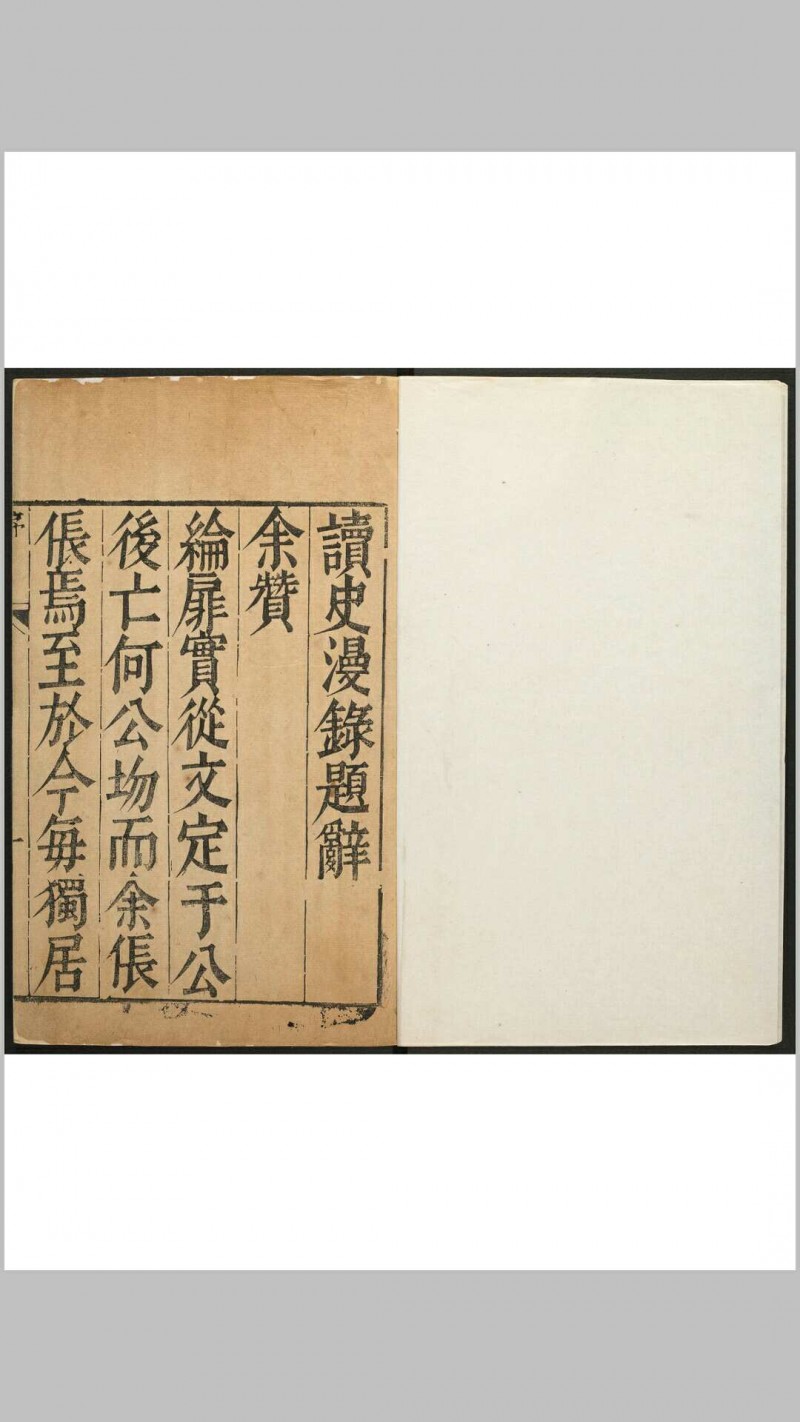 讀史漫錄題辭
余贊
綸扉實從文定于公
後亡何公歾而余倀
倀焉至於今每獨居
序
一